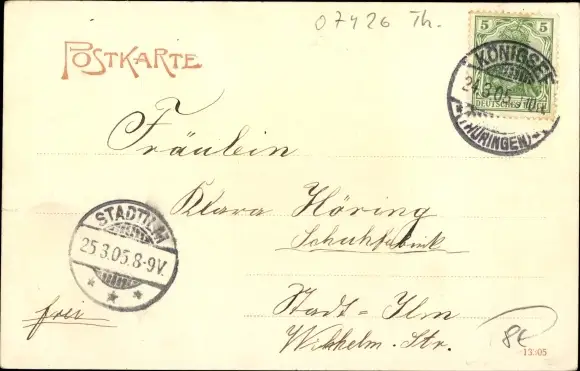 07426 Th.
POSTKARTE
5 5
DEUTSCHES REICH
KÖNIGSEE
24.3.05
*(THÜRINGEN)*
Fräulein
Klara Höring
Schuhfabrik
STADTILM
25.3.05.8-9V.
Stadt-Ilm
frei
Wilhelm-Str.
8€